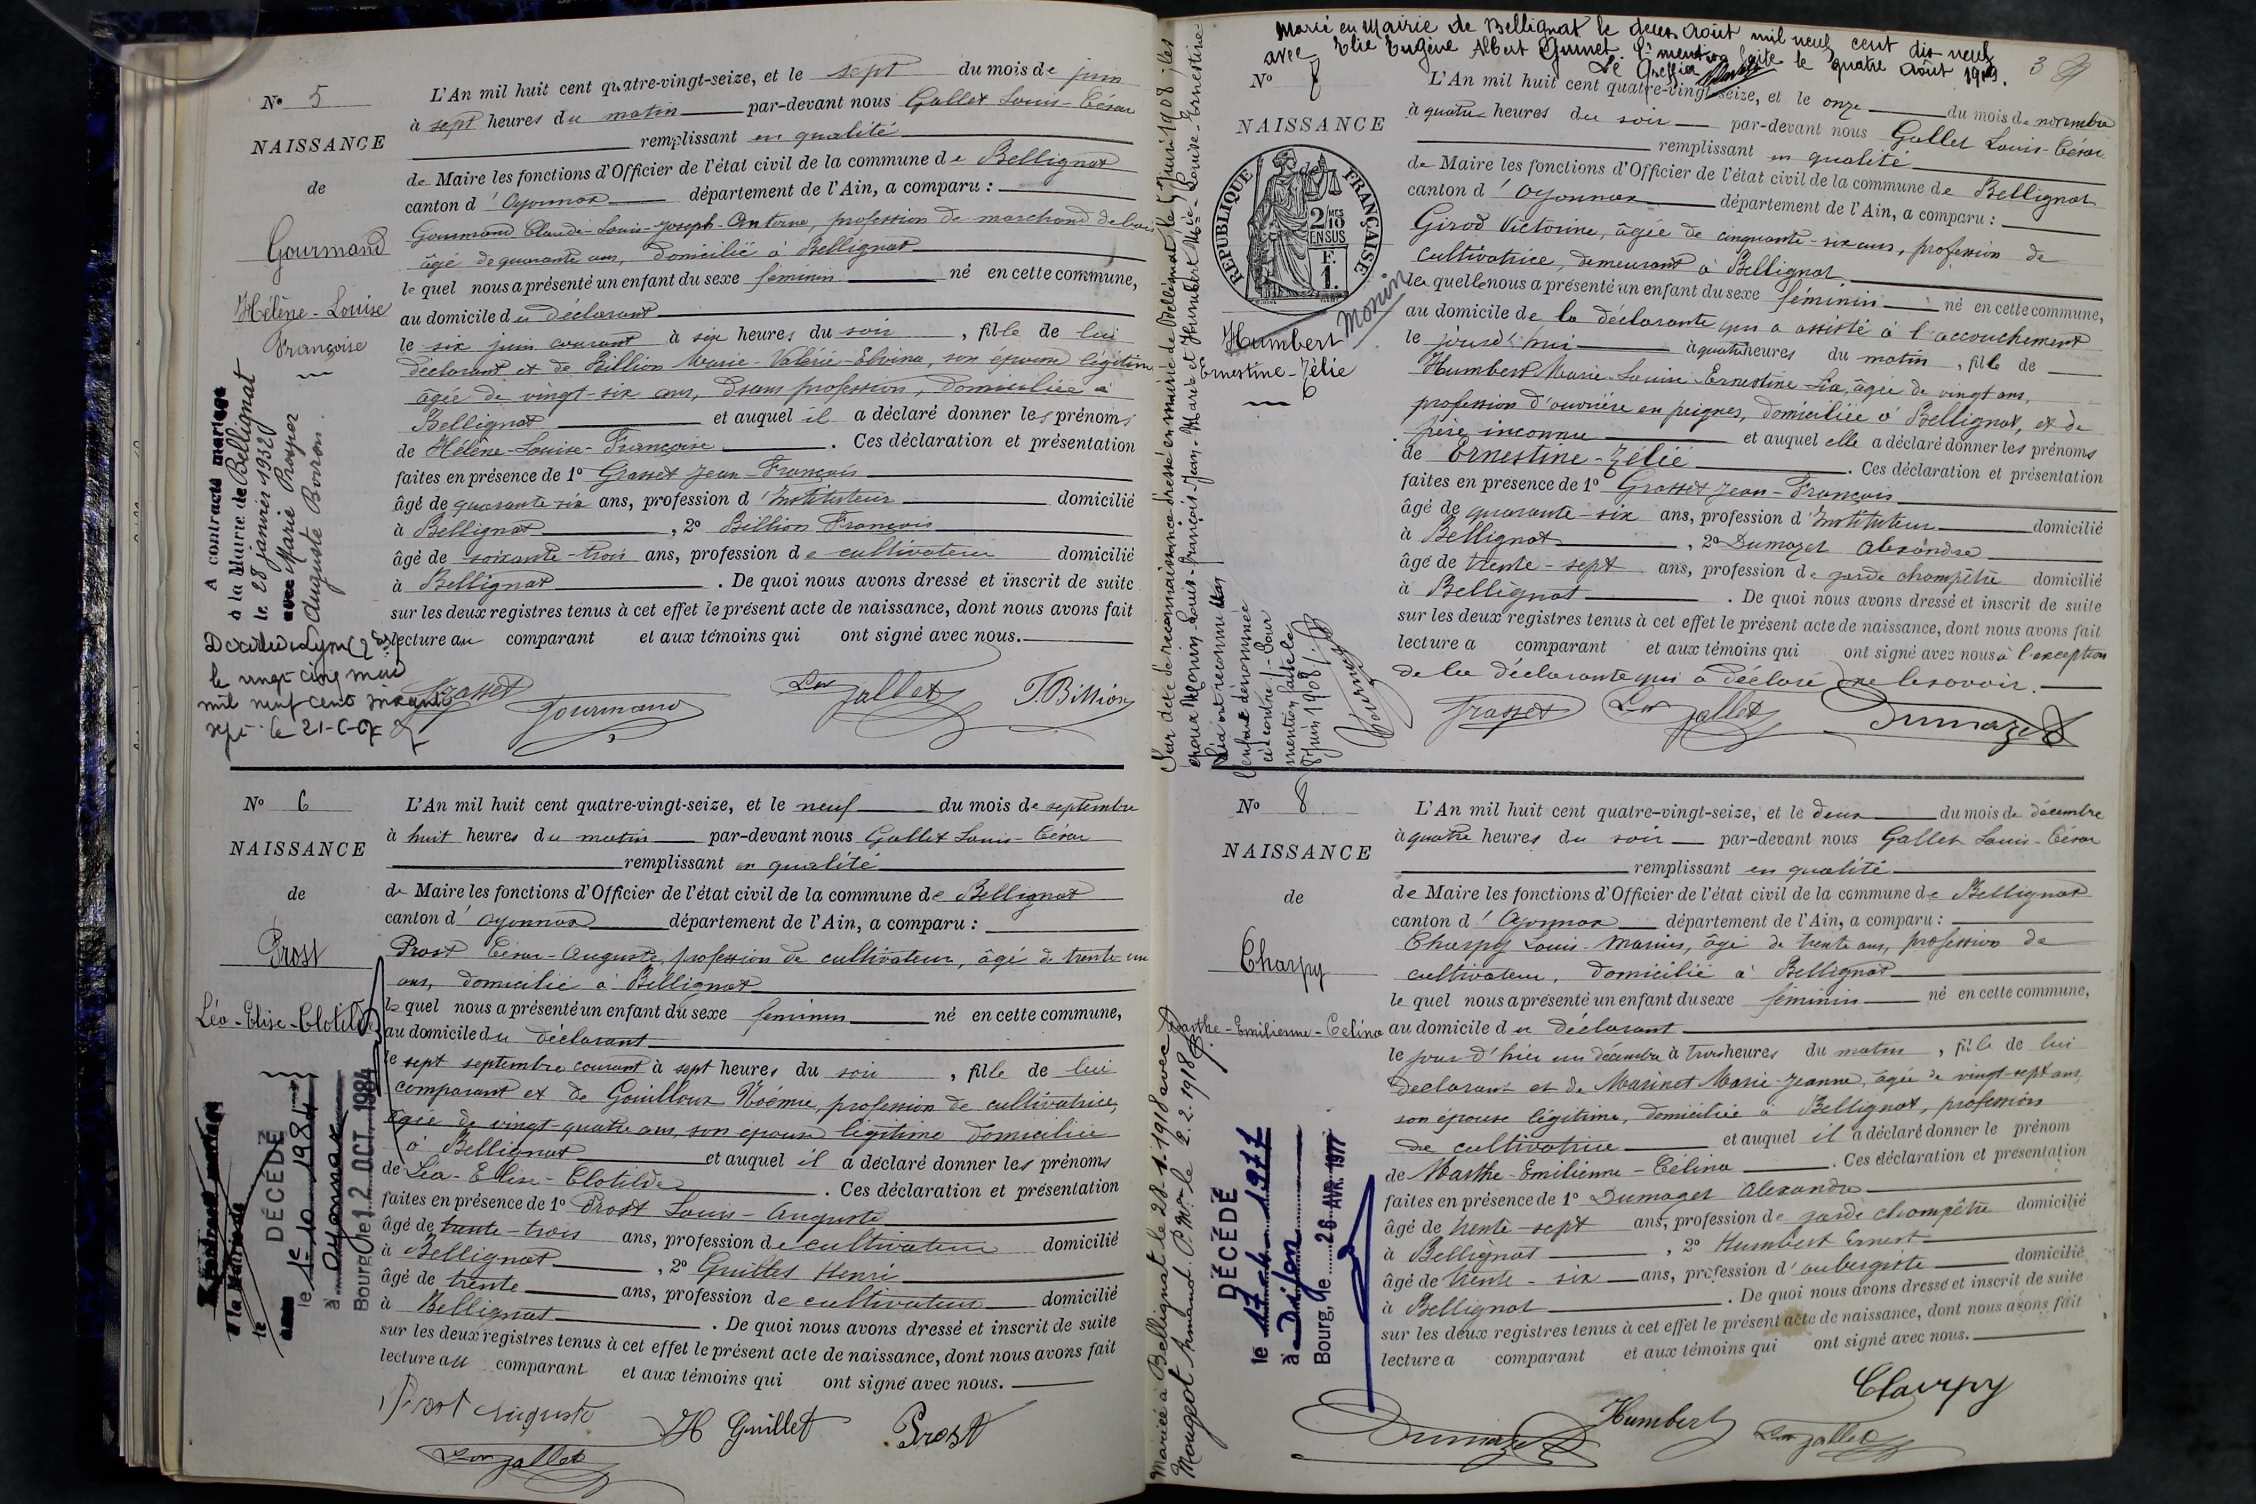 N° 5
NAISSANCE
de
Gourmand
Hélène-Louise
Françoise
A contracté mariage
à la Mairie de Bellignat
le 28 janvier 1932
avec Marie Prosper
Auguste Boiron
le vingt cinq mai
mil neuf cent soixante
sept le 21-6-67
L'An mil huit cent quatre-vingt-seize, et le sept du mois de juin
à sept heures du matin par-devant nous Gallet Louis-César
remplissant en qualité
de Maire les fonctions d'Officier de l'état civil de la commune de Bellignat
canton d'Oyonnax département de l'Ain, a comparu :
Gourmand Claude-Louis-Joseph-Antoine, profession de marchand de bois
âgé de quarante ans, domicilié à Bellignat
le quel nous a présenté un enfant du sexe féminin né en cette commune,
au domicile du déclarant
le six juin courant à six heures du soir, fille de lui
déclarant et de Billion Marie-Valérie-Elvina, son épouse légitime
âgée de vingt-six ans, sans profession, domiciliée à
Bellignat et auquel il a déclaré donner les prénoms
de Hélène-Louise-Françoise. Ces déclaration et présentation
faites en présence de 1° Grasset Jean-François
âgé de quarante-six ans, profession d'Instituteur domicilié
à Bellignat, 2° Billion François
âgé de soixante-trois ans, profession de cultivateur domicilié
à Bellignat. De quoi nous avons dressé et inscrit de suite
sur les deux registres tenus à cet effet le présent acte de naissance, dont nous avons fait
lecture au comparant et aux témoins qui ont signé avec nous.
Grasset Gourmand Ls Gallet F. Billion
N° 6
NAISSANCE
de
Prost
Léa-Elise-Clotilde
DÉCÉDÉ
le 1er 10 1984
à Oyonnax
Bourg, le 12 OCT. 1984
L'An mil huit cent quatre-vingt-seize, et le neuf du mois de septembre
à huit heures du matin par-devant nous Gallet Louis-César
remplissant en qualité
de Maire les fonctions d'Officier de l'état civil de la commune de Bellignat
canton d'Oyonnax département de l'Ain, a comparu :
Prost César-Auguste, profession de cultivateur, âgé de trente un
ans, domicilié à Bellignat
le quel nous a présenté un enfant du sexe féminin né en cette commune,
au domicile du déclarant
le sept septembre courant à sept heures du soir, fille de lui
comparant et de Gouilloux Noémie, profession de cultivatrice,
âgée de vingt-quatre ans, son épouse légitime domiciliée
à Bellignat et auquel il a déclaré donner les prénoms
de Léa-Elise-Clotilde. Ces déclaration et présentation
faites en présence de 1° Prost Louis-Auguste
âgé de trente-trois ans, profession de cultivateur domicilié
à Bellignat, 2° Guillet Henri
âgé de trente ans, profession de cultivateur domicilié
à Bellignat. De quoi nous avons dressé et inscrit de suite
sur les deux registres tenus à cet effet le présent acte de naissance, dont nous avons fait
lecture au comparant et aux témoins qui ont signé avec nous.
Prost Auguste H Guillet Prost
Ls Gallet
Marié en Mairie de Bellignat le deux Août mil neuf cent dix neuf
avec Elie Eugène Albert Mention faite le quatre Août 1919.
Le Greffier
3
N° 7
NAISSANCE
de
RÉPUBLIQUE FRANÇAISE
2/10mes EN SUS
1 F.
Humbert Monin
Ernestine-Zélie
Par acte de reconnaissance dressé en mairie de Bellignat le 6 Juin 1908, les
époux Monin Louis-François-Jean-Marie et Humbert Marie-Louise-Ernestine
Léa ont reconnu
l'enfant dénommée
ci-contre. Pour
mention faite le
8 Juin 1908
L'An mil huit cent quatre-vingt-seize, et le onze du mois de novembre
à quatre heures du soir par-devant nous Gallet Louis-César
remplissant en qualité
de Maire les fonctions d'Officier de l'état civil de la commune de Bellignat
canton d'Oyonnax département de l'Ain, a comparu :
Girod Victorine, âgée de cinquante-six ans, profession de
cultivatrice, demeurant à Bellignat
la quelle nous a présenté un enfant du sexe féminin né en cette commune,
au domicile de la déclarante qui a assisté à l'accouchement
le jourd'hui à quatre heures du matin, fille de
Humbert Marie-Louise-Ernestine-Léa, âgée de vingt ans,
profession d'ouvrière en peignes, domiciliée à Bellignat, et de
père inconnu et auquel elle a déclaré donner les prénoms
de Ernestine-Zélie. Ces déclaration et présentation
faites en présence de 1° Grasset Jean-François
âgé de quarante-six ans, profession d'Instituteur domicilié
à Bellignat, 2° Dumazet Alexandre
âgé de trente-sept ans, profession de garde champêtre domicilié
à Bellignat. De quoi nous avons dressé et inscrit de suite
sur les deux registres tenus à cet effet le présent acte de naissance, dont nous avons fait
lecture a comparant et aux témoins qui ont signé avec nous à l'exception
de la déclarante qui a déclaré ne le savoir.
Grasset Ls Gallet Dumazet
N° 8
NAISSANCE
de
Charpy
Marthe-Emilienne-Celina
Mariée à Bellignat le 28.1.1918 avec
Mougeot Armand. P. Mon le 2.2.1918
DÉCÉDÉ
le 17.4.1977
à Dijon
Bourg, le 26 AVR. 1977
L'An mil huit cent quatre-vingt-seize, et le deux du mois de décembre
à quatre heures du soir par-devant nous Gallet Louis-César
remplissant en qualité
de Maire les fonctions d'Officier de l'état civil de la commune de Bellignat
canton d'Oyonnax département de l'Ain, a comparu :
Charpy Louis-Marius, âgé de trente ans, profession de
cultivateur, domicilié à Bellignat
le quel nous a présenté un enfant du sexe féminin né en cette commune,
au domicile du déclarant
le jour d'hier un décembre à trois heures du matin, fille de lui
déclarant et de Marinet Marie-Jeanne, âgée de vingt-sept ans,
son épouse légitime, domiciliée à Bellignat, profession
de cultivatrice et auquel il a déclaré donner le prénom
de Marthe-Emilienne-Célina. Ces déclaration et présentation
faites en présence de 1° Dumazet Alexandre
âgé de trente-sept ans, profession de garde champêtre domicilié
à Bellignat, 2° Humbert Ernest
âgé de trente-six ans, profession d'aubergiste domicilié
à Bellignat. De quoi nous avons dressé et inscrit de suite
sur les deux registres tenus à cet effet le présent acte de naissance, dont nous avons fait
lecture a comparant et aux témoins qui ont signé avec nous.
Charpy
Dumazet Humbert Ls Gallet